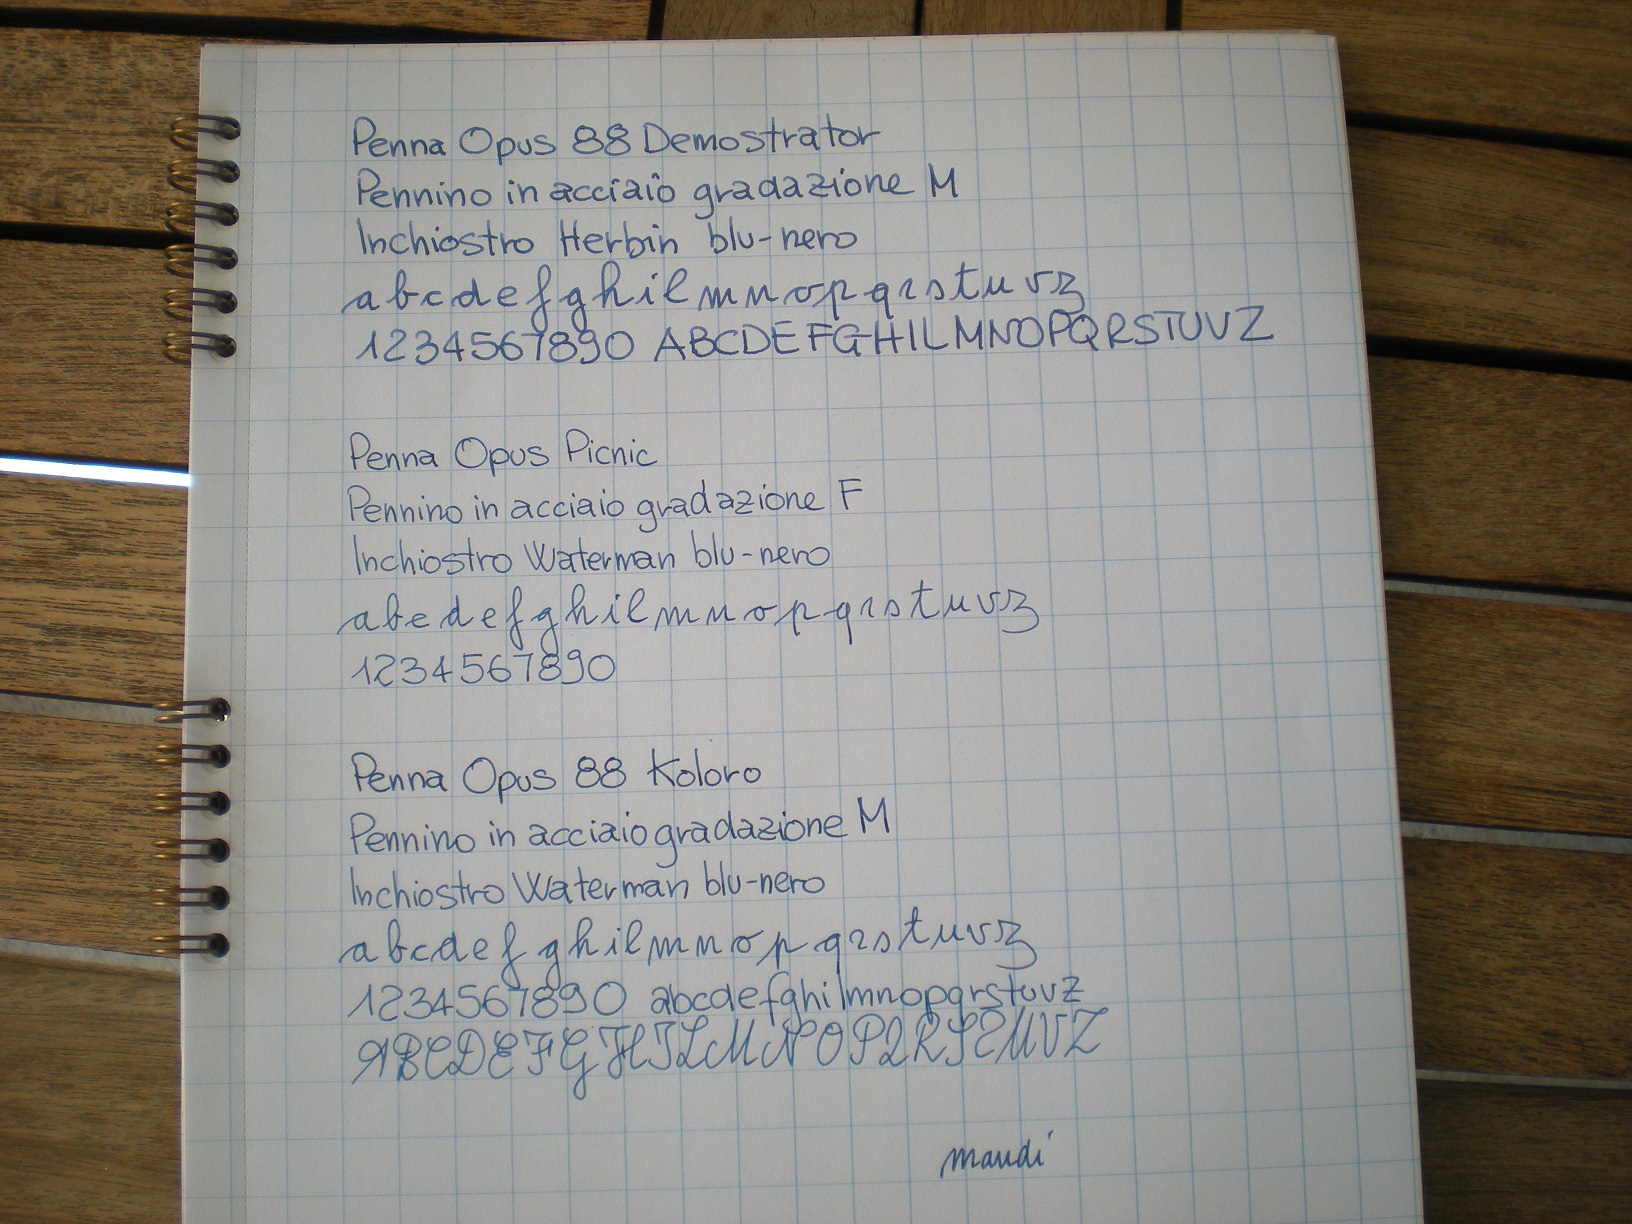 Penna Opus 88 Demostrator
Pennino in acciaio gradazione M
Inchiostro Herbin blu-nero
abcdefghilmnopqrstuvz
1234567890 ABCDEFGHILMNOPQRSTUVZ
Penna Opus Picnic
Pennino in acciaio gradazione F
Inchiostro Waterman blu-nero
abcdefghilmnopqrstuvz
1234567890
Penna Opus 88 Koloro
Pennino in acciaio gradazione M
Inchiostro Waterman blu-nero
abcdefghilmnopqrstuvz
1234567890 abcdefghilmnopqrstuvz
ABCDEFGHILMNOPQRSTUVZ
mandi